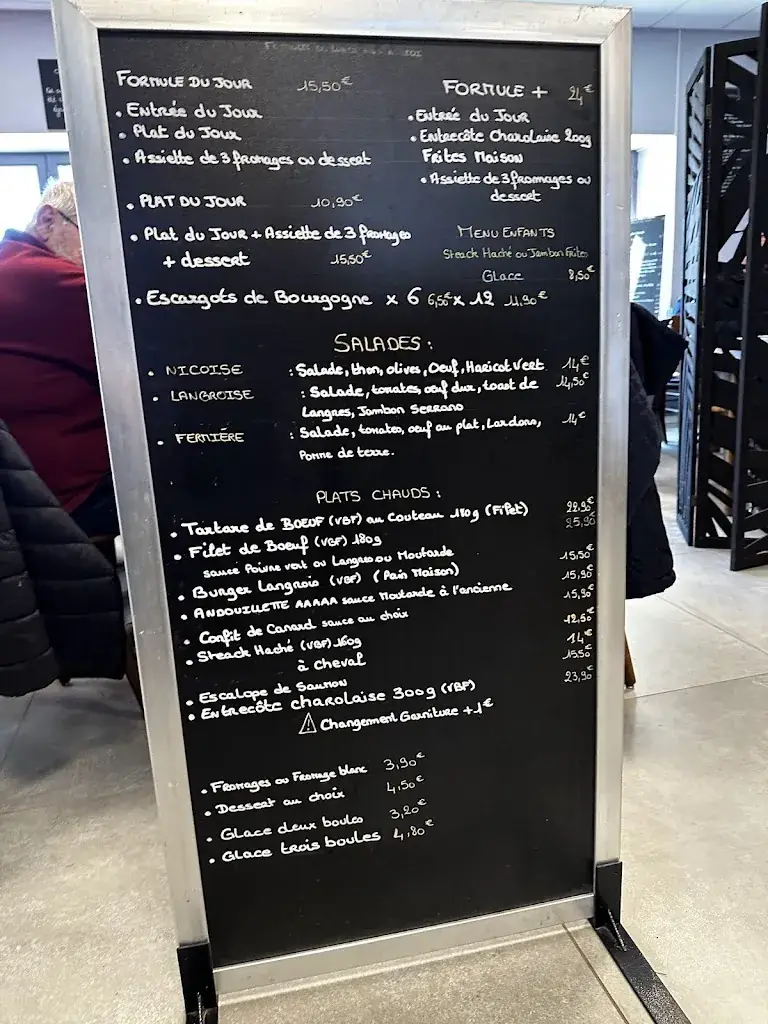 FORMULE DU JOUR 15,50€
• Entrée du Jour
• Plat du Jour
• Assiette de 3 fromages ou dessert
• PLAT DU JOUR 10,90€
• Plat du Jour + Assiette de 3 fromages
+ dessert 15,50€
FORMULE + 24€
• Entrée du Jour
• Entrecôte Charolaise 200g
Frites Maison
• Assiette de 3 frommages ou
dessert
MENU ENFANTS
Steack Haché ou Jambon Frites
Glace 8,50€
• Escargots de Bourgogne x 6 6,50€ x 12 11,90€
SALADES :
• NICOISE : Salade, thon, olives, Oeuf, Haricot Vert 14€
• LANGROISE : Salade, tomates, oeuf dur, toast de 14,50€
Langres, Jambon Serrano
• FERMIÈRE : Salade, tomates, oeuf au plat, Lardons, 14€
Pomme de terre.
PLATS CHAUDS :
• Tartare de BOEUF (VBF) au Couteau 180g (Filet) 22,90€
• Filet de Boeuf (VBF) 180g 25,90
sauce Poivre vert ou Langres ou Moutarde
• Burger Langrois (VBF) (Pain Maison) 15,50€
• ANDOUILLETTE AAAAA sauce Moutarde à l'ancienne 15,90€
• Confit de Canard sauce au choix 15,90€
• Steack Haché (VBF) 160g 12,50€
à cheval 14€
• Escalope de Saumon 15,50€
• Entrecôte charolaise 300g (VBF) 23,90€
⚠ Changement Garniture + 1€
• Fromages ou Fromage blanc 3,90€
• Dessert au choix 4,50€
• Glace deux boules 3,20€
• Glace trois boules 4,80€